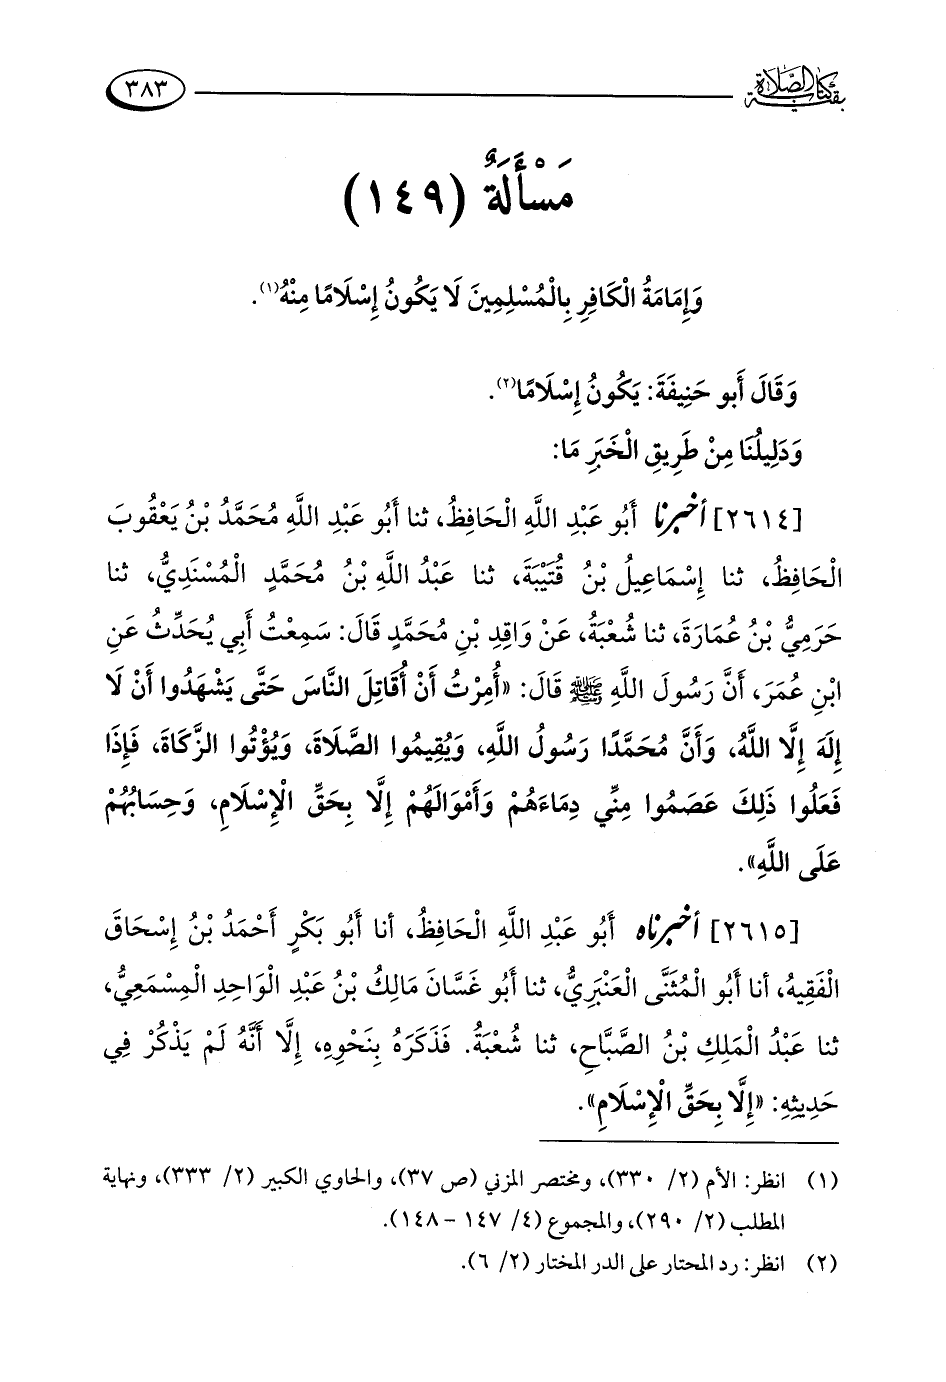 بقية كتاب الصلاة
٣٨٣
مَسْأَلَةٌ (١٤٩)
وَإِمَامَةُ الْكَافِرِ بِالْمُسْلِمِينَ لَا يَكُونُ إِسْلَامًا مِنْهُ(١).
وَقَالَ أَبو حَنِيفَةَ: يَكُونُ إِسْلَامًا(٢).
وَدَلِيلُنَا مِنْ طَرِيقِ الْخَبَرِ مَا:
[٢٦١٤] أخبرنا أَبُو عَبْدِ اللَّهِ الْحَافِظُ، ثنا أَبُو عَبْدِ اللَّهِ مُحَمَّدُ بْنُ يَعْقُوبَ
الْحَافِظُ، ثنا إِسْمَاعِيلُ بْنُ قُتَيْبَةَ، ثنا عَبْدُ اللَّهِ بْنُ مُحَمَّدٍ الْمُسْنَدِيُّ، ثنا
حَرَمِيُّ بْنُ عُمَارَةَ، ثنا شُعْبَةُ، عَنْ وَاقِدِ بْنِ مُحَمَّدٍ قَالَ: سَمِعْتُ أَبِي يُحَدِّثُ عَنِ
ابْنِ عُمَرَ، أَنَّ رَسُولَ اللَّهِ ﷺ قَالَ: «أُمِرْتُ أَنْ أُقَاتِلَ النَّاسَ حَتَّى يَشْهَدُوا أَنْ لَا
إِلَهَ إِلَّا اللَّهُ، وَأَنَّ مُحَمَّدًا رَسُولُ اللَّهِ، وَيُقِيمُوا الصَّلَاةَ، وَيُؤْتُوا الزَّكَاةَ، فَإِذَا
فَعَلُوا ذَلِكَ عَصَمُوا مِنِّي دِمَاءَهُمْ وَأَمْوَالَهُمْ إِلَّا بِحَقِّ الْإِسْلَامِ، وَحِسَابُهُمْ
عَلَى اللَّهِ».
[٢٦١٥] أخبرناه أَبُو عَبْدِ اللَّهِ الْحَافِظُ، أنا أَبُو بَكْرٍ أَحْمَدُ بْنُ إِسْحَاقَ
الْفَقِيهُ، أنا أَبُو الْمُثَنَّى الْعَنْبَرِيُّ، ثنا أَبُو غَسَّانَ مَالِكُ بْنُ عَبْدِ الْوَاحِدِ الْمِسْمَعِيُّ،
ثنا عَبْدُ الْمَلِكِ بْنُ الصَّبَّاحِ، ثنا شُعْبَةُ. فَذَكَرَهُ بِنَحْوِهِ، إِلَّا أَنَّهُ لَمْ يَذْكُرْ فِي
حَدِيثِهِ: «إِلَّا بِحَقِّ الْإِسْلَامِ».
(١) انظر: الأم (٢/ ٣٣٠)، ومختصر المزني (ص ٣٧)، والحاوي الكبير (٢/ ٣٣٣)، ونهاية
المطلب (٢/ ٢٩٠)، والمجموع (٤/ ١٤٧ - ١٤٨).
(٢) انظر: رد المحتار على الدر المختار (٢/ ٦).